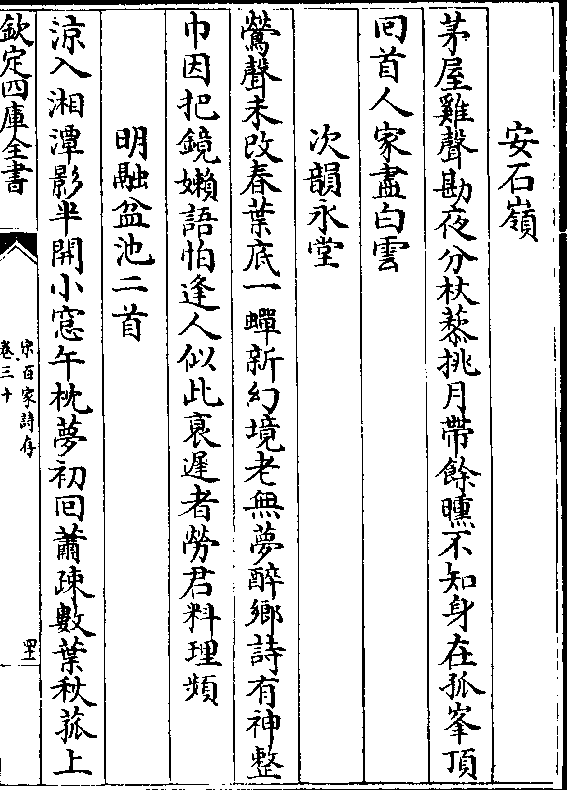 安石嶺
茅屋雞聲勘夜分杖藜挑月帶餘曛不知身在孤峯頂
回首人家盡白雲
次韻永堂
鶯聲未改春葉底一蟬新幻境老無夢醉鄉詩有神整
巾因把鏡嬾語怕逢人似此衰遲者勞君料理頻
明融盆池二首
涼入湘潭影半開小窓午枕夢初回蕭疎數葉秋菰上
欽定四庫全書
宋百家詩存
卷三十